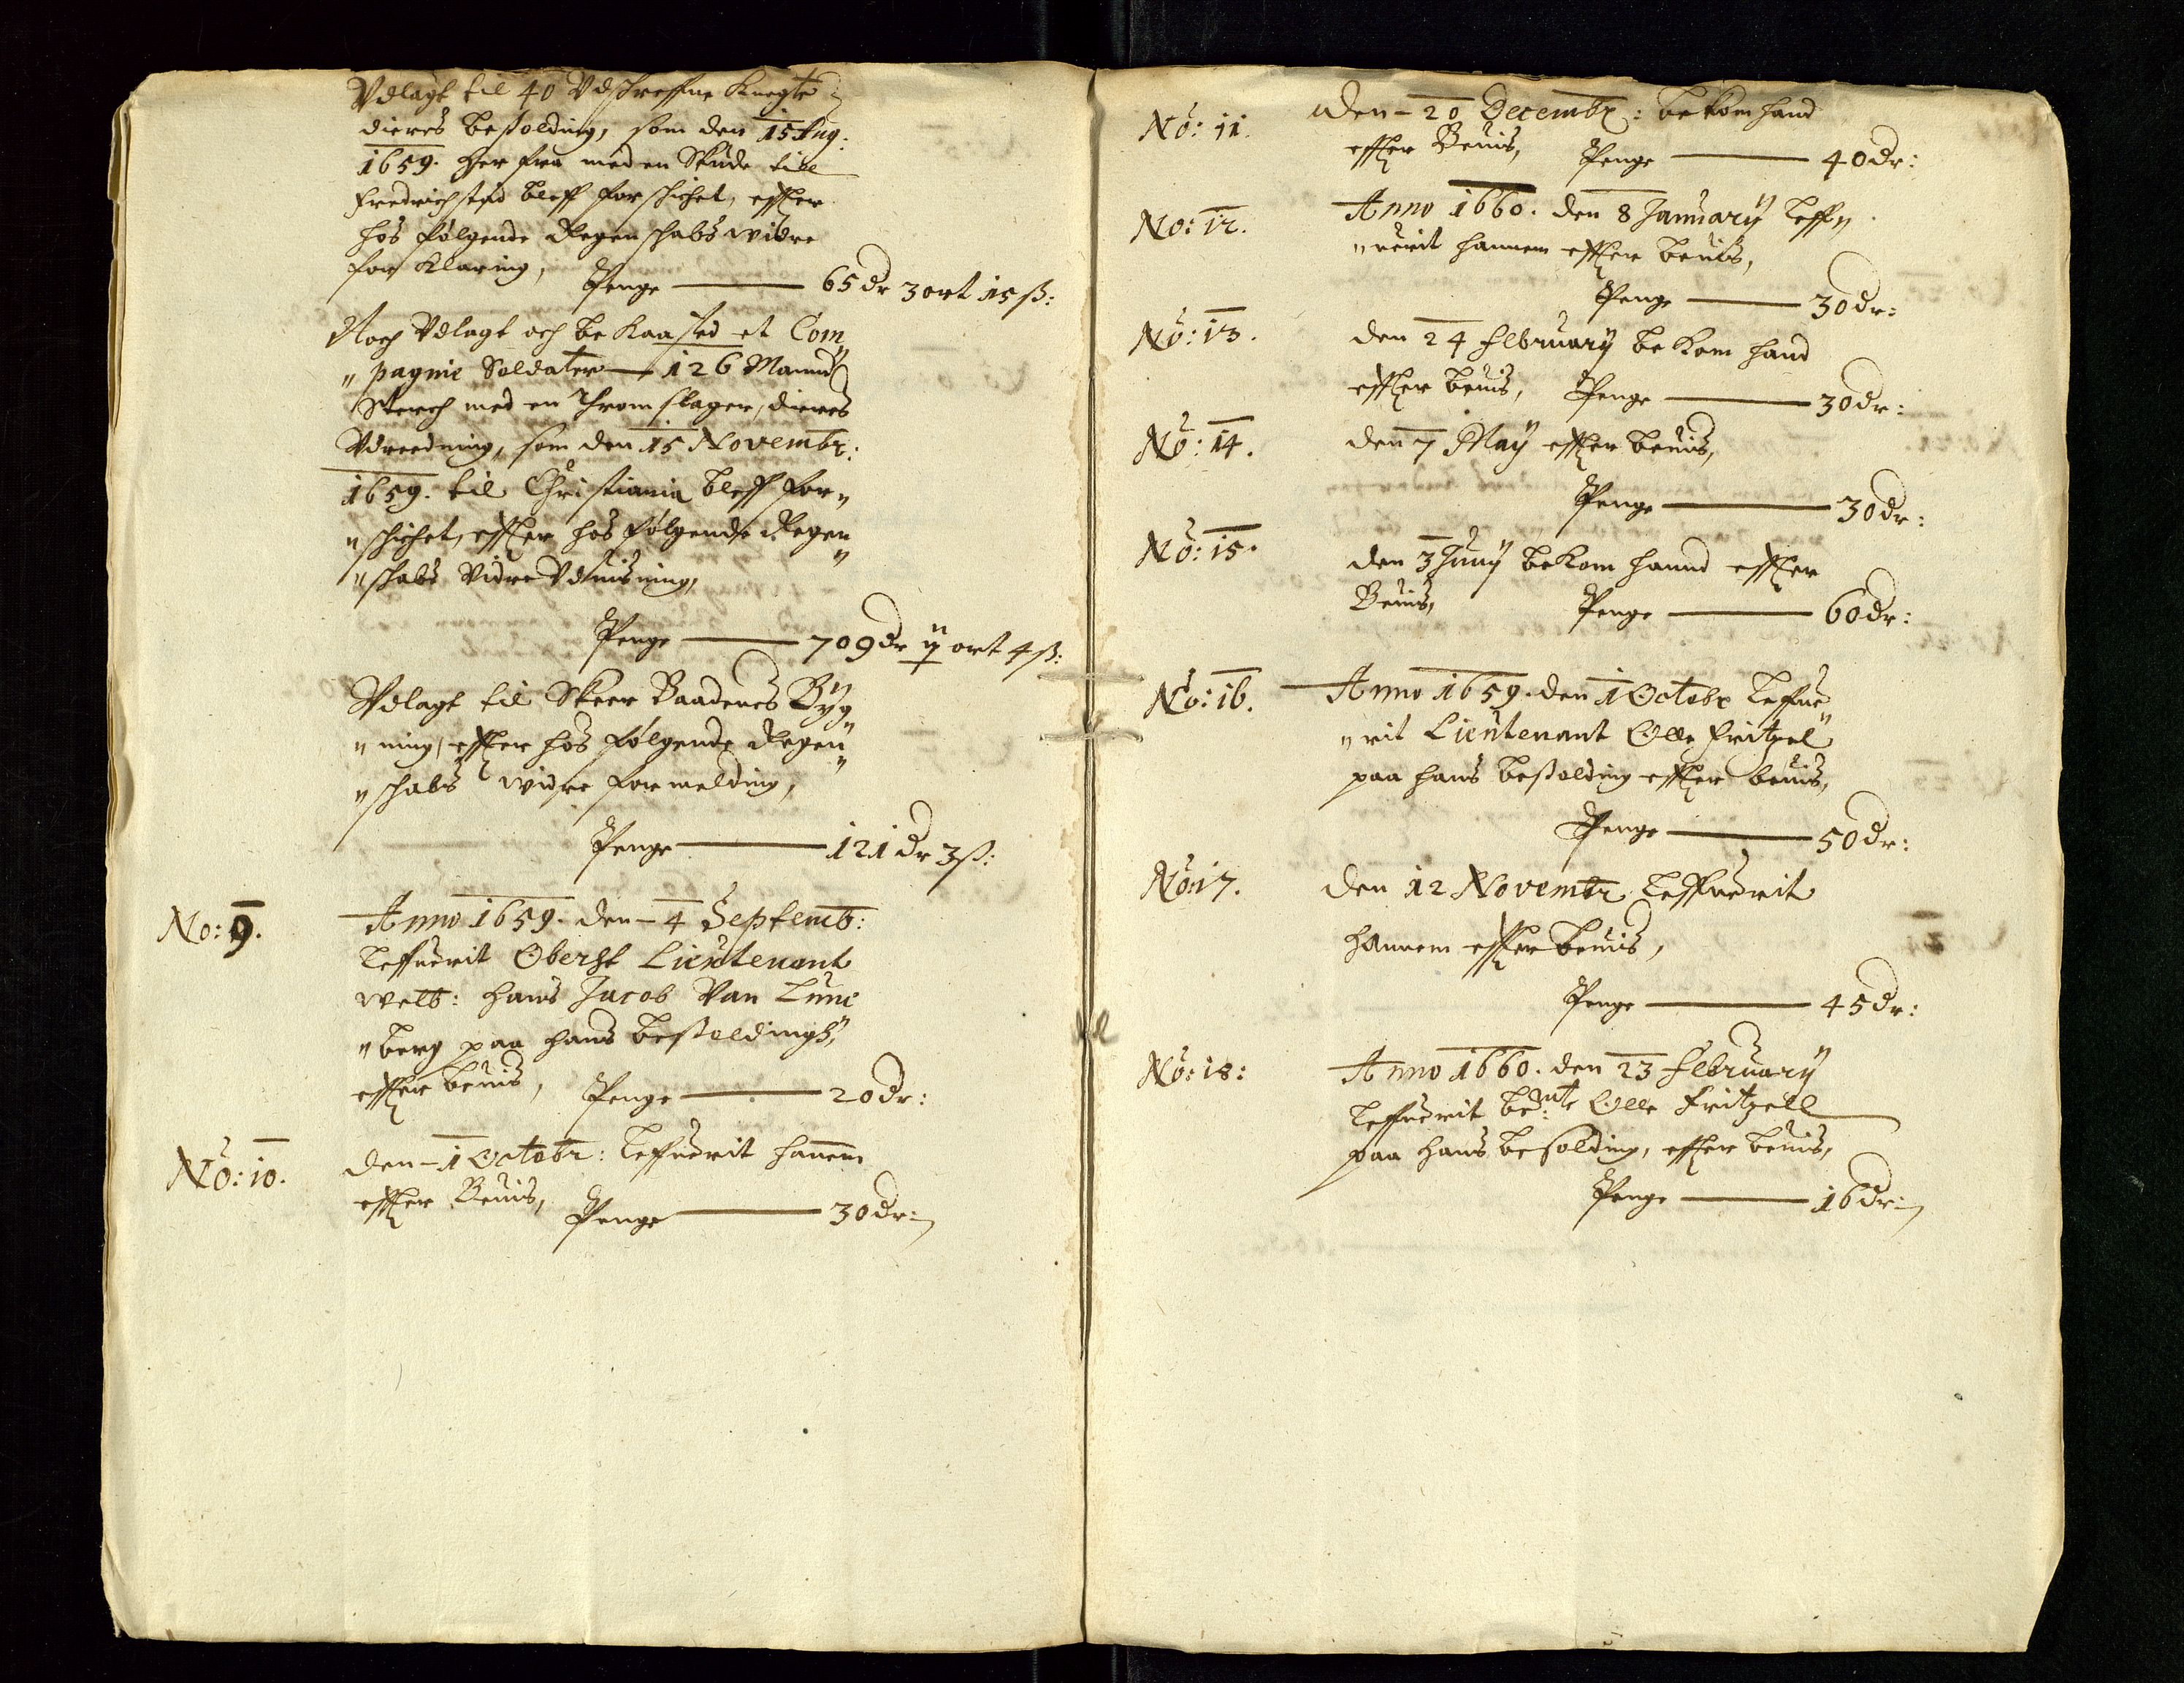 Vdlagt til 40 Vdschreffne Knegte
dieres besolding, som den 15 Aug:
1659. her fra med en Skude till
Fredrichstad bleff forschichet, effter
hos følgende Regenschabs widre
for Klaring, Penge — 65 dr 3 ort 15 ß:
Noch Vdlagt och be Kaasted et Com„
„pagnie Soldater — 126 Mannd
Sterch med en Thromslager, dieres
Vdreedning, som den 15 Novembr:
1659. til Christiania bleff for„
„schichet, effter hos følgende Regen„
„schabs Vidre Vduisning,
Penge — 709 dr ij ort 4 ß:
Vdlagt til Skeer Baadenes Byg„
„ning, effter hos følgende Regen„
„schabs widre formelding,
Penge — 121 dr 3 ß:
No: 9. Anno 1659. den – 4 Septemb:
Leffuerit Oberst Lieutenant
welb: Hans Jacob Van Lune
„berg paa hans besoldingh,
effter beuis, Penge — 20 dr:
No: 10. den – 1 Octobr: Leffuerit hannem
effter Beuis, Penge — 30 dr:
No: 11. den – 20 Decembr: bekom hand
effter Beuis, Penge — 40 dr:
No: 12. Anno 1660. den 8 January Leff„
„uerit hannem effter beuis,
Penge — 30 dr:
No: 13. den 24 February be Kom hand
effter beuis, Penge — 30 dr:
No: 14. den 7 May effter beuis,
Penge — 30 dr:
No: 15. den 3 Juny beKom hannd effter
Beuis, Penge — 60 dr:
No: 16. Anno 1659. den 1 Octobr Leffue„
„rit Lieutenant Olle Fritzel
paa hans besolding effter beuis,
Penge — 50 dr:
No: 17. den 12 Novembr Leffuerit
hannem effter beuis,
Penge — 45 dr:
No: 18: Anno 1660. den 23 February
Leffuerit bed:nte Olle Fritzell
paa hans besolding, effter beuis,
Penge — 16 dr: